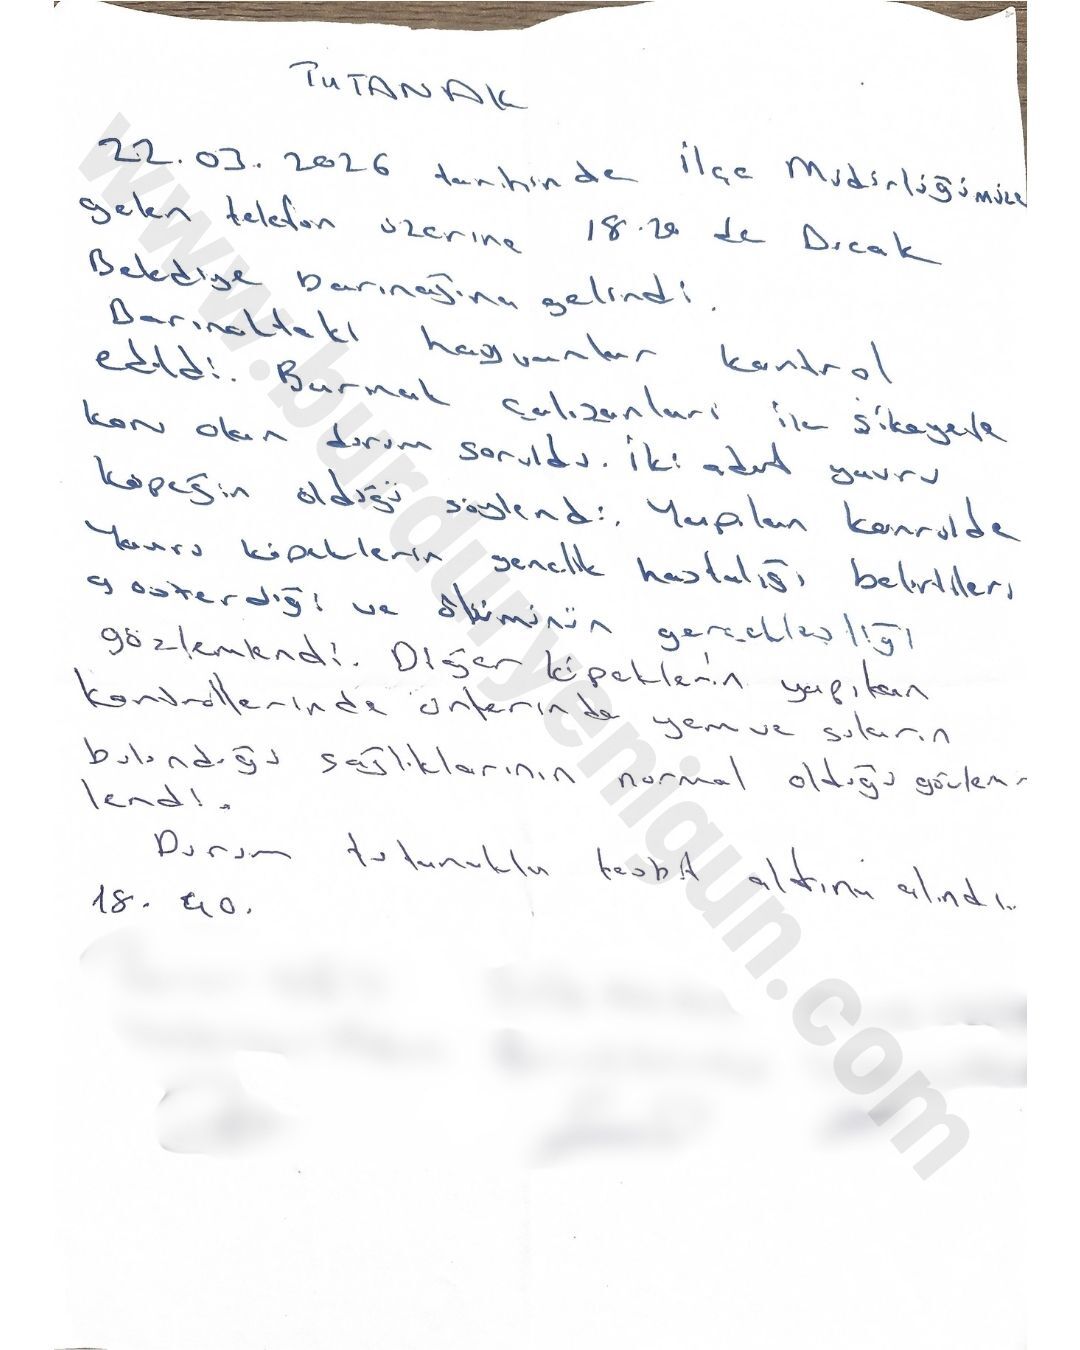 TUTANAK
22.03.2026 tarihinde İlçe Müdürlüğümüze
gelen telefon üzerine 18.20 de Bucak
Belediye barınağına gelindi.
Barınaktaki hayvanlar kontrol
edildi. Barınak çalışanları ile şikayete
konu olan durum soruldu. İki adet yavru
köpeğin olduğu söylendi. Yapılan konrolde
Yavru köpeklerin gençlik hastalığı belirtileri
gösterdiği ve ölümünün gerçekleştiği
gözlemlendi. Diğer köpeklerin yapılan
kontrollerinde önlerinde yem ve suların
bulunduğu sağlıklarının normal olduğu gözlem-
lendi.
Durum tutanakla tesbit altına alındı.
18.40.
www.burduryenigun.com